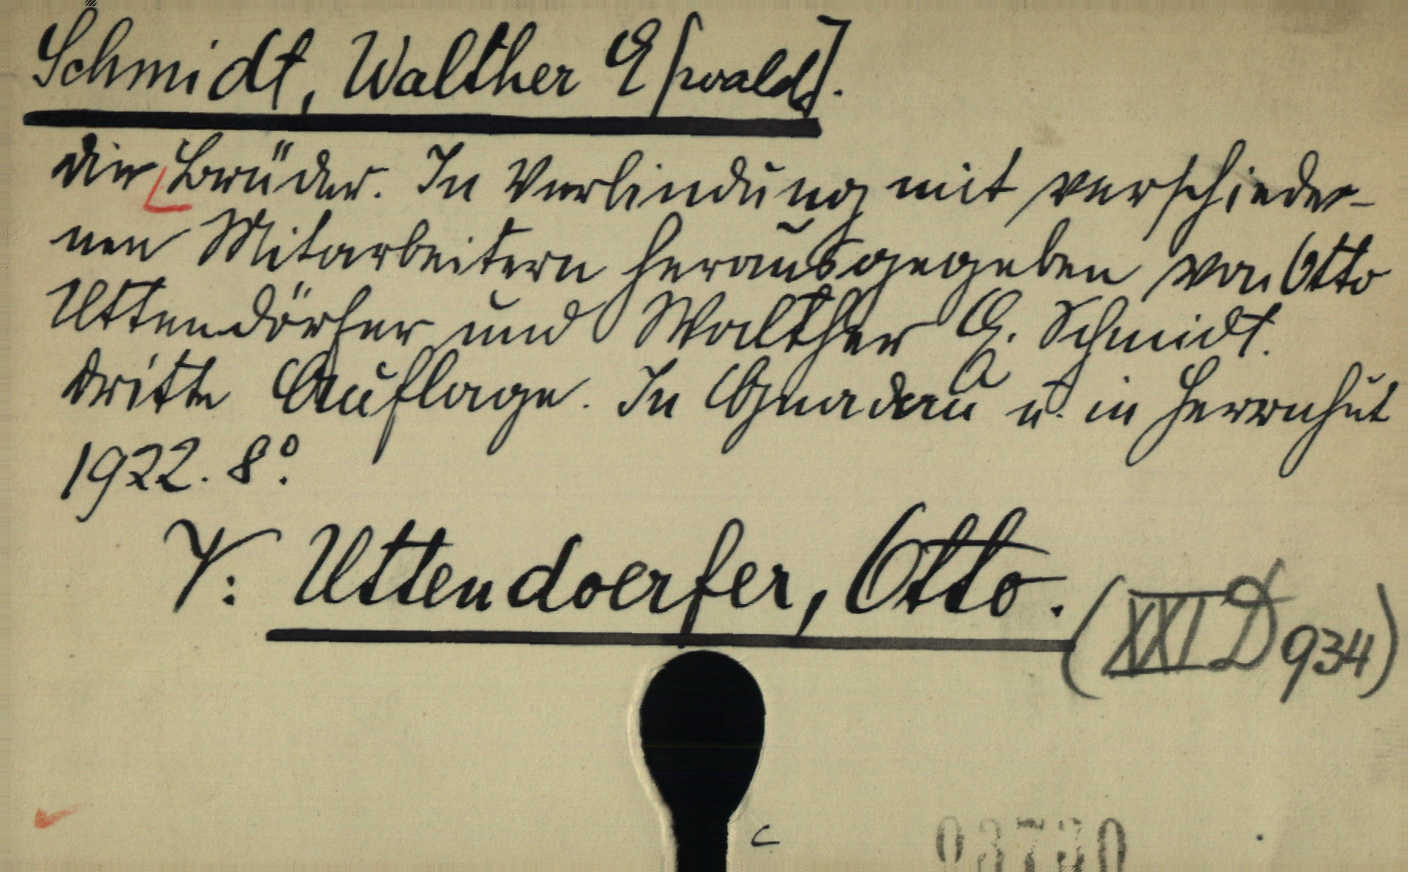 Schmidt, Walther E[wald].
Die Brüder. In Verbindung mit verschiede-
nen Mitarbeitern herausgegeben von Otto
Uttendörfer und Walther E. Schmidt.
Dritte Auflage. In Gnadau u. in Herrnhut
1922. 8°.
V: Uttendoerfer, Otto.
(XXI D 934)
c